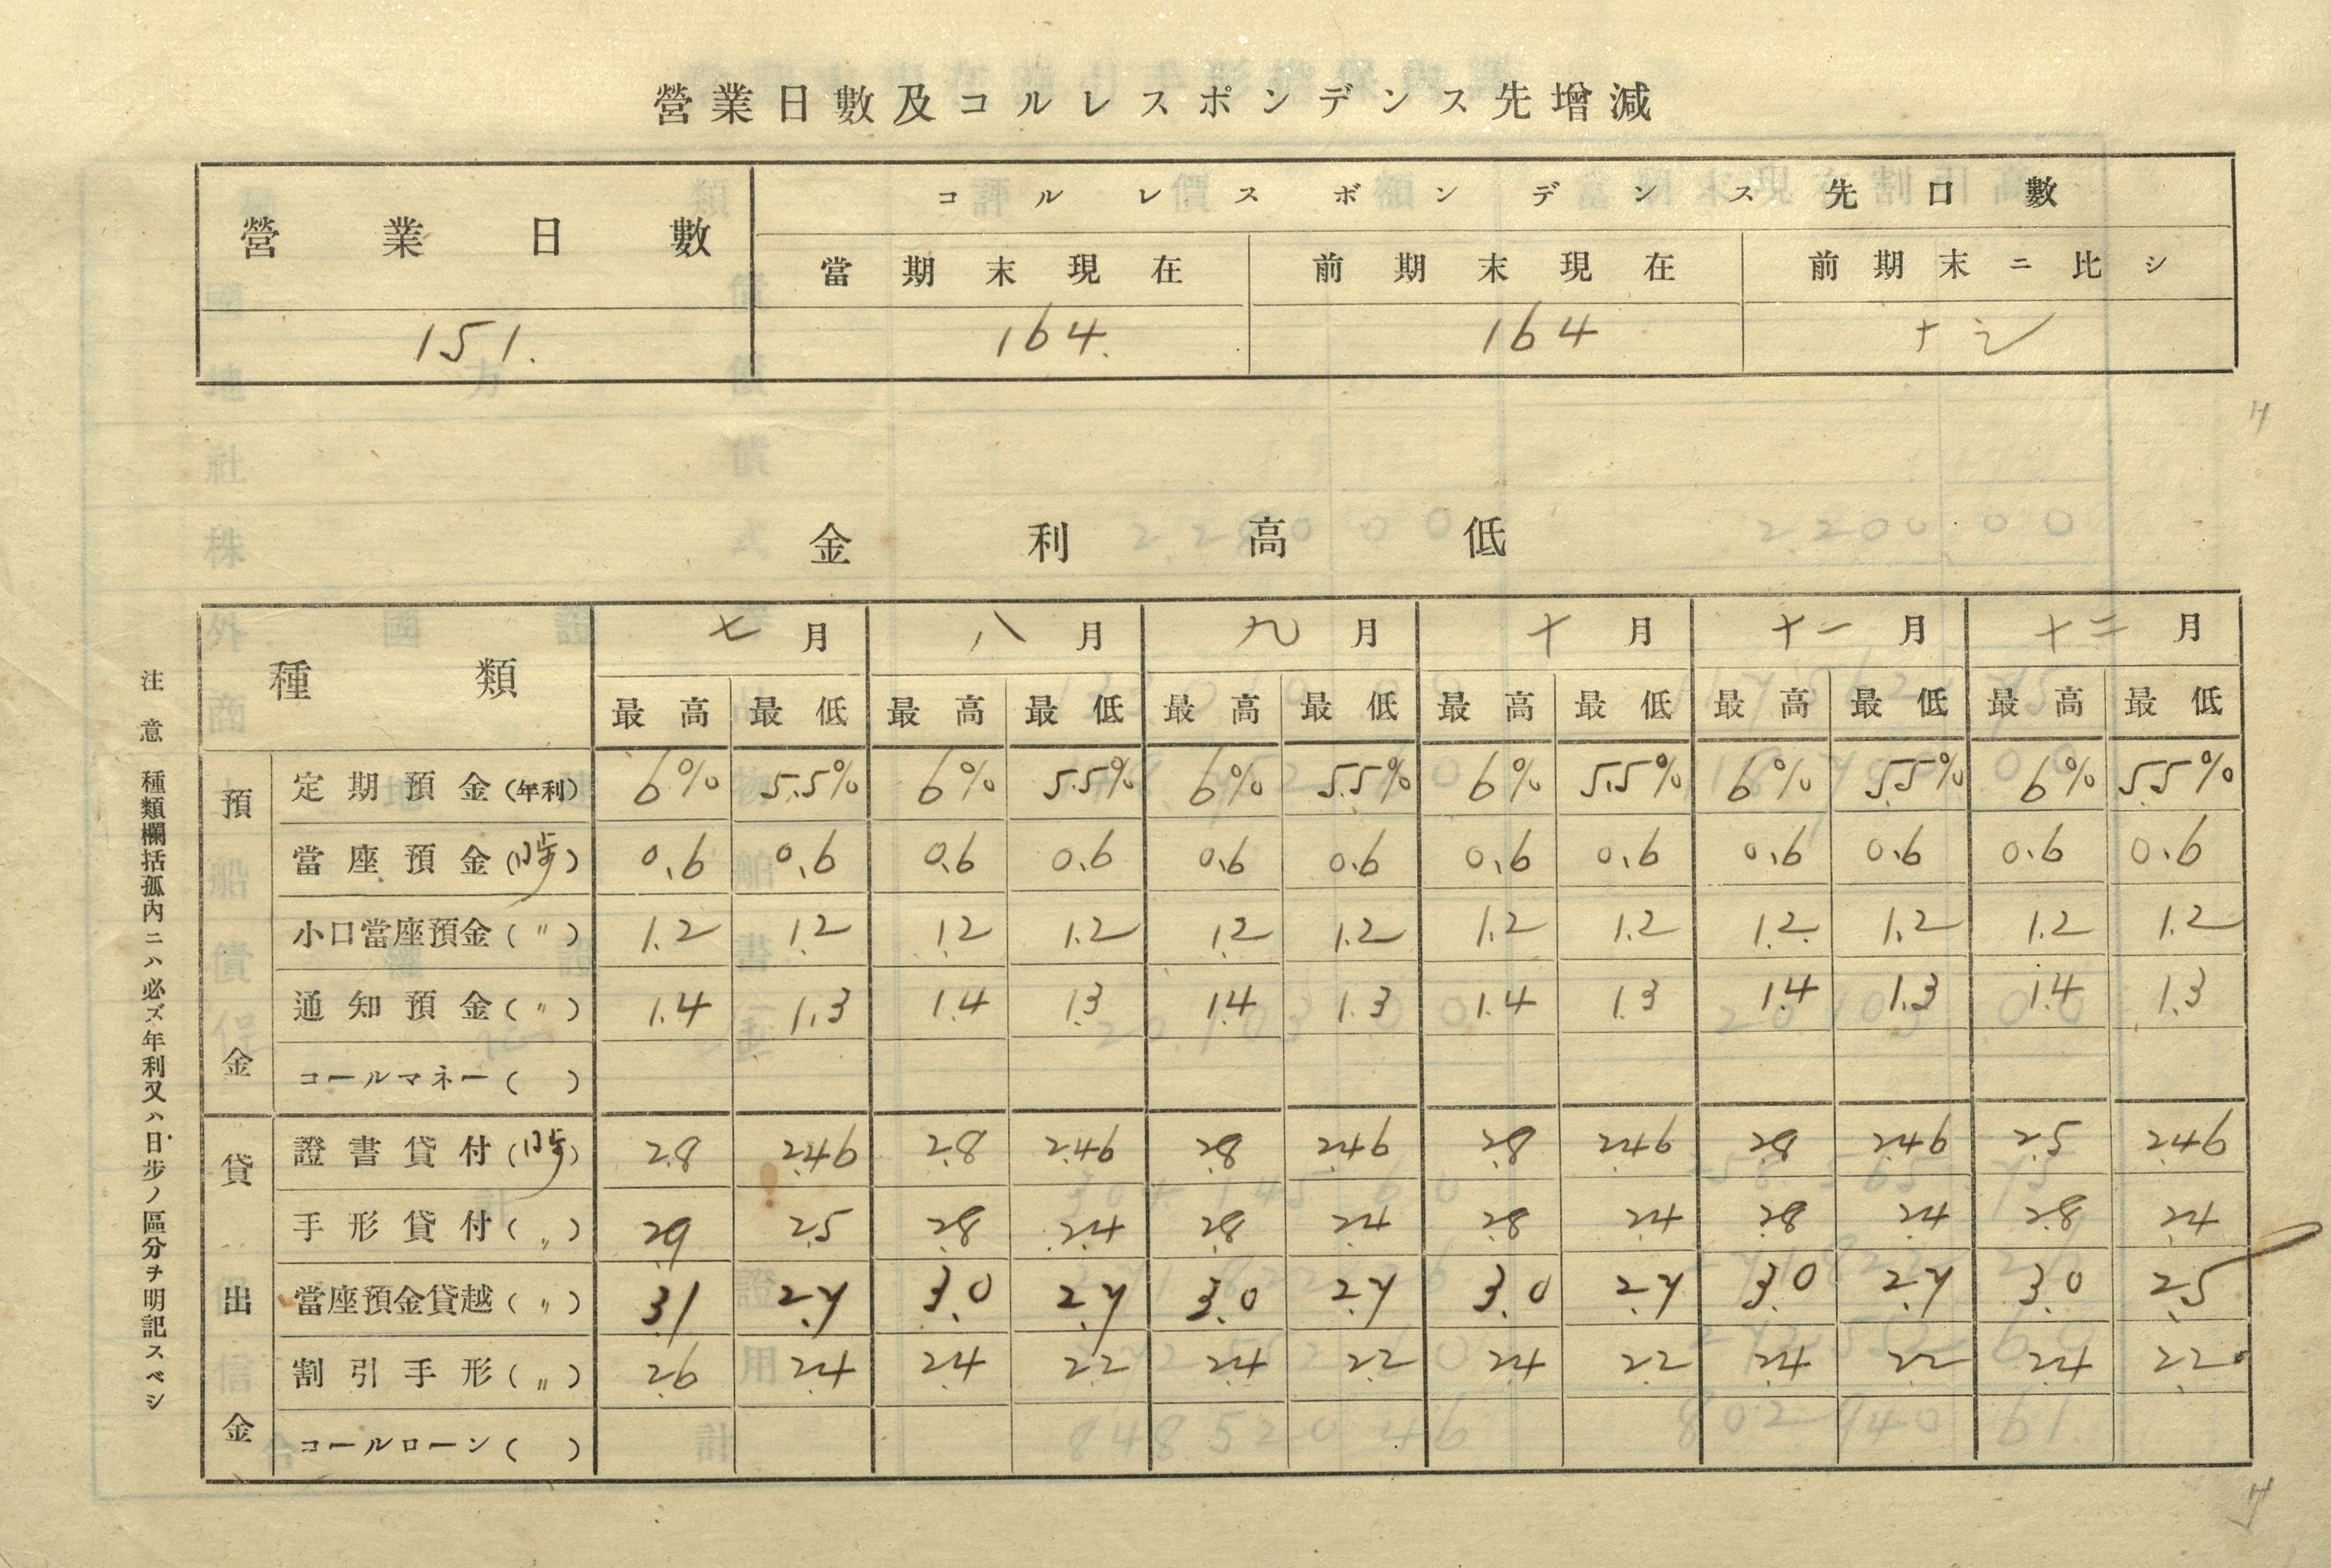 營業日數及コルレスポンデンス先增減
營業日數 コルレスポンデンス先口數
當期末現在 前期末現在 前期末ニ比シ
151. 164. 164 ナシ
金利高低
種類 七月 八月 九月 十月 十一月 十二月
最高 最低 最高 最低 最高 最低 最高 最低 最高 最低 最高 最低
預金
定期預金(年利) 6% 5.5% 6% 5.5% 6% 5.5% 6% 5.5% 6% 5.5% 6% 5.5%
當座預金(日歩) 0.6 0.6 0.6 0.6 0.6 0.6 0.6 0.6 0.6 0.6 0.6 0.6
小口當座預金(〃) 1.2 1.2 1.2 1.2 1.2 1.2 1.2 1.2 1.2 1.2 1.2 1.2
通知預金(〃) 1.4 1.3 1.4 1.3 1.4 1.3 1.4 1.3 1.4 1.3 1.4 1.3
コールマネー( )
貸出金
證書貸付(日歩) 2.8 2.46 2.8 2.46 2.8 2.46 2.8 2.46 2.8 2.46 2.5 2.46
手形貸付(〃) 2.9 2.5 2.8 2.4 2.8 2.4 2.8 2.4 2.8 2.4 2.8 2.4
當座預金貸越(〃) 3.1 2.7 3.0 2.7 3.0 2.7 3.0 2.7 3.0 2.7 3.0 2.5
割引手形(〃) 2.6 2.4 2.4 2.2 2.4 2.2 2.4 2.2 2.4 2.2 2.4 2.2
コールローン( )
注意 種類欄括孤内ニハ必ズ年利又ハ日步ノ區分ヲ明記スベシ